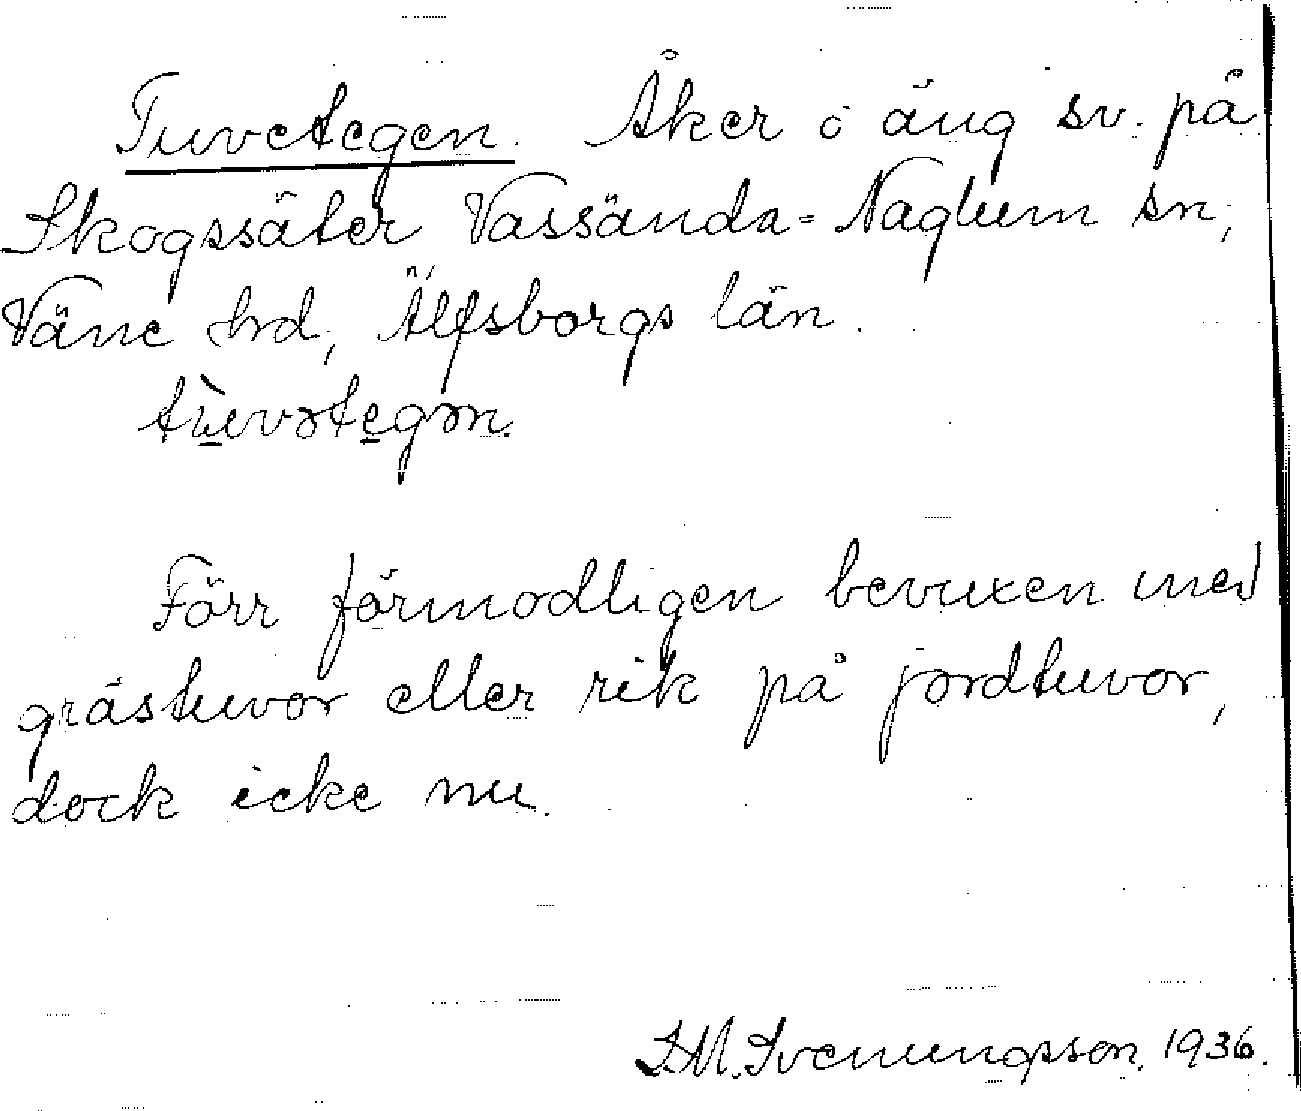 Tuvetegen. Åker o äng sv. på
Skogssäter Vassända=Naglum sn,
Väne hrd, Älfsborgs län.
tùvətegən.
Förr förmodligen bevuxen med
grästuvor eller rik på jordtuvor,
dock icke nu.
Svenungsson. 1936.